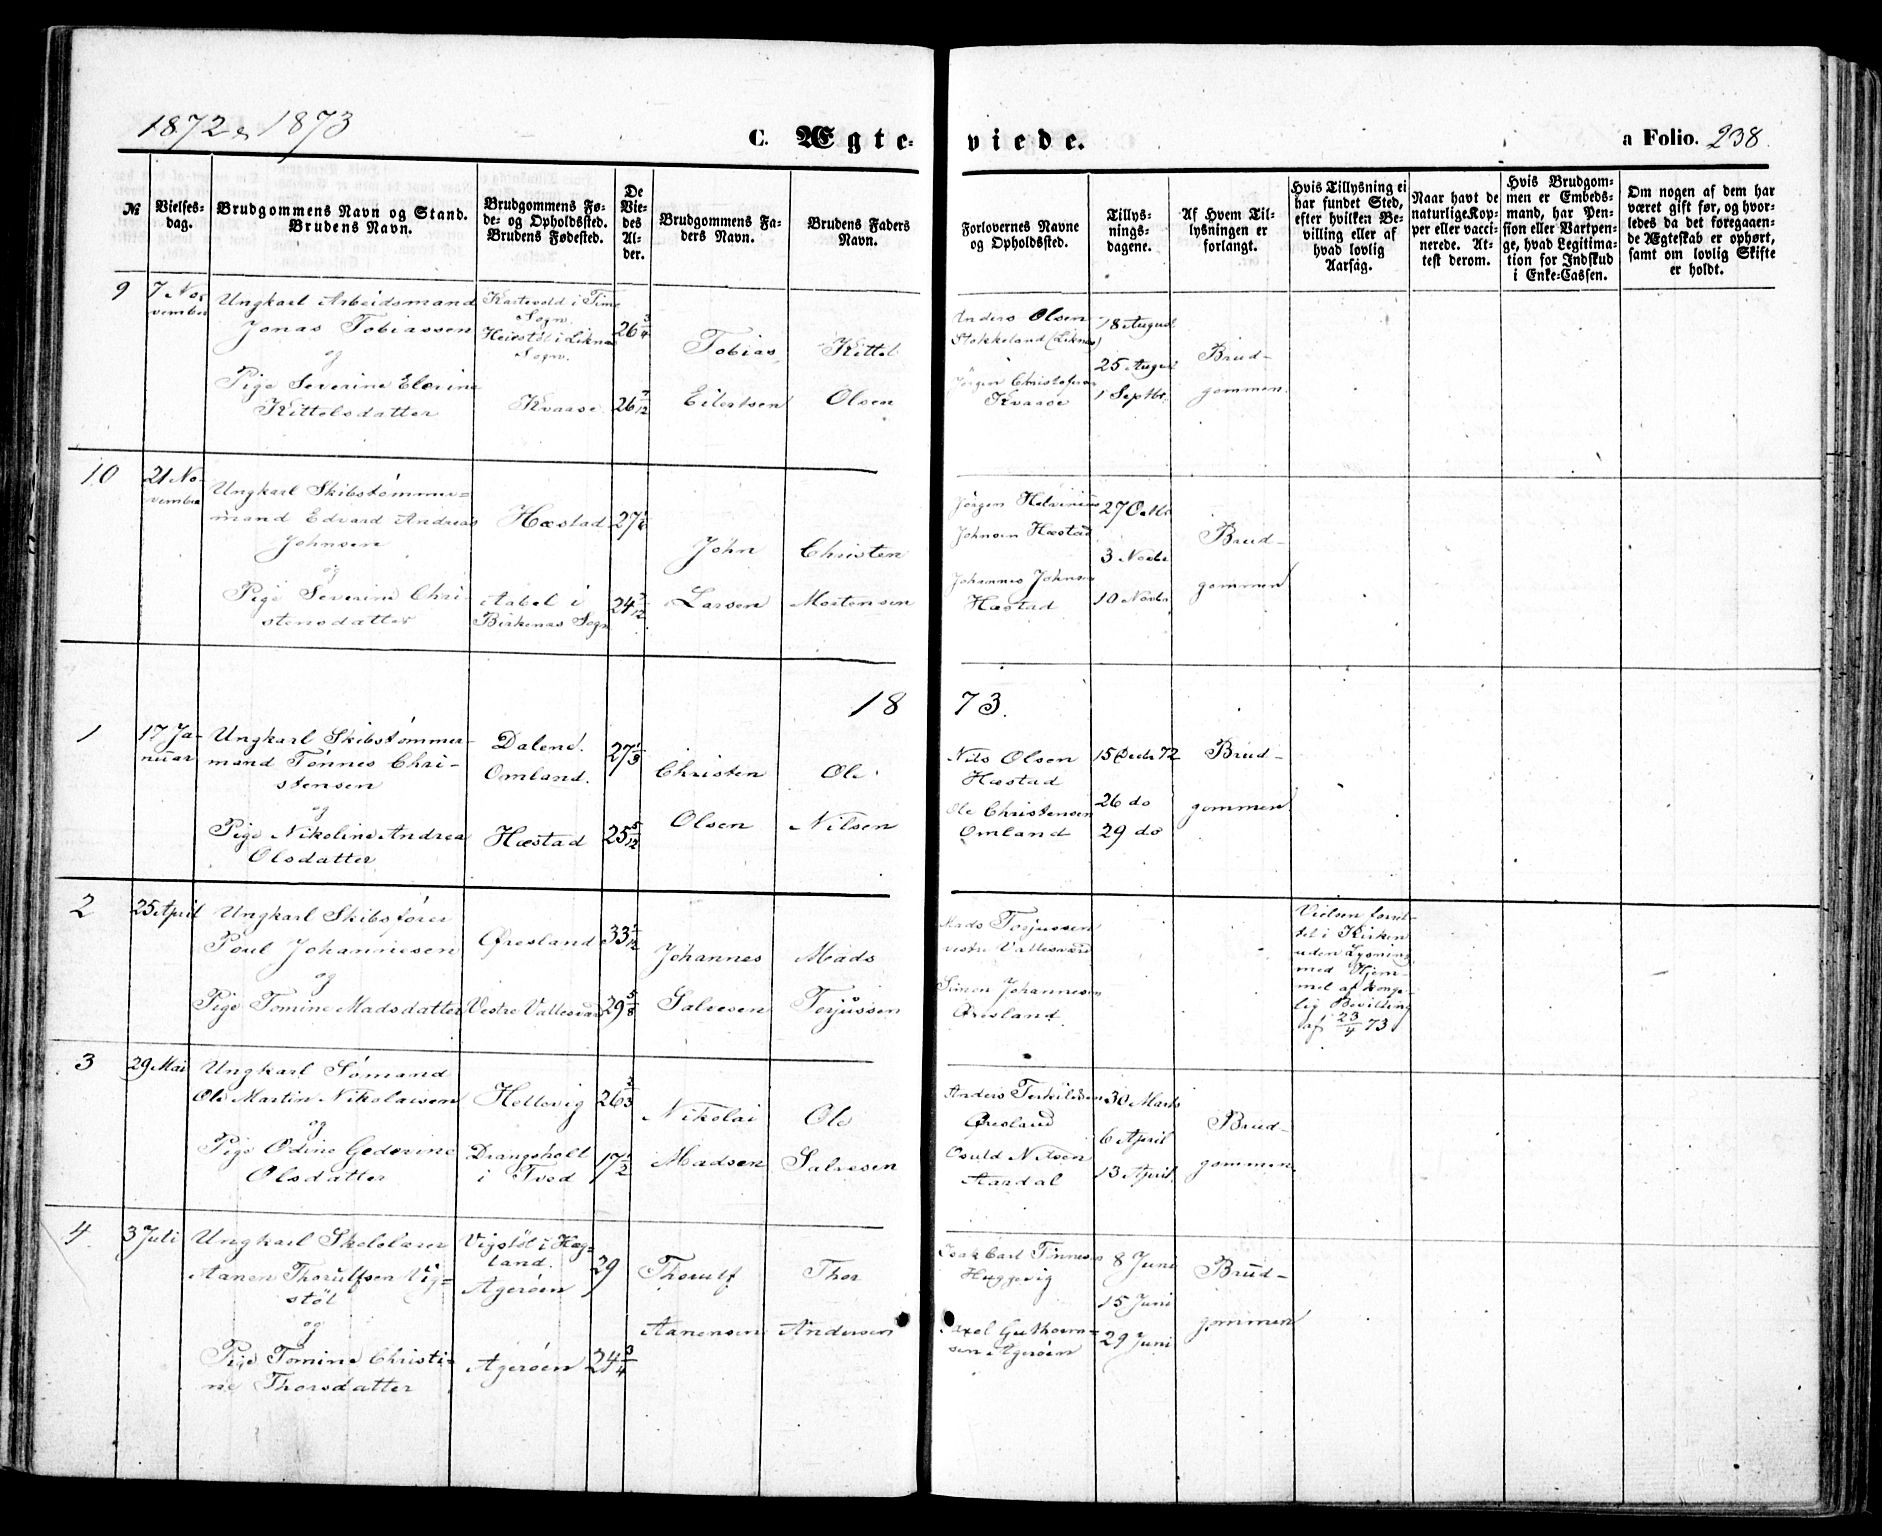 1872 & 1873
C. Ægte-
viede.
a Folio. 238.
№
Vielses-
dag.
Brudgommens Navn og Stand.
Brudens Navn.
Brudgommens Fø-
de- og Opholdssted.
Brudens Fødested.
De
Vie-
des
Al-
der.
Brudgommens Fa-
ders Navn.
Brudens Faders
Navn.
Forlovernes Navne
og Opholdssted.
Tillys-
nings-
dagene.
Af Hvem Til-
lysningen er
forlangt.
Hvis Tillysning ei
har fundet Sted,
efter hvilken Be-
villing eller af
hvad lovlig
Aarsag.
Naar havt de
naturlige Kop-
per eller vacci-
nerede. At-
test derom.
Hvis Brudgom-
men er Embeds-
mand, har Pen-
sion eller Vartpen-
ge, hvad Legitima-
tion for Indskud
i Enke-Cassen.
Om nogen af dem har
været gift før, og hvor-
ledes da det foregaaen-
de Ægteskab er ophørt,
samt om lovlig Skifte
er holdt.
9
7 No-
vember
Ungkarl Arbeidsmand
Jonas Tobiassen
og
Pige Severine Elerine
Kittelsdatter
i Time
Sogn.
i Liknes
Sogn.
Kvaase
26 3/4
26 7/12
Tobias
Eilertsen
Kittel
Olsen
Anders Olsen
Stokkeland (Liknes)
Jörgen Christofersen
Kvaase
18 August
25 August
1 Septbr.
Brud-
gommen.
10
21 No-
vember
Ungkarl Skibstömmer-
mand Edvard Andreas
Johnsen
og
Pige Severine Chri-
stensdatter
Hæstad
Aabel i
Birkenæs Sogn
27 1/6
24 7/12
John
Larsen
Christen
Mortensen
Jörgen
Johnsen Hæstad
Johannes Johnsen
Hæstad
27 Octbr
3 Novbr
10 Novbr
Brud-
gommen
18 73.
1
17 Ja-
nuar
Ungkarl Skibstömmer-
mand Tönnes Chri-
stensen
og
Pige Nikoline Andrea
Olsdatter
Dalend.
Omland.
Hæstad
27 1/3
25 5/12
Christen
Olsen
Ole
Nilsen
Nils Olsen
Hæstad
Ole Christensen
Omland
15 Decbr 72
26 do
29 do
Brud-
gommen
2
25 April
Ungkarl Skibsförer
Poul Johannesen
og
Pige Tomine Madsdatter
Øresland
Vestre Vallesværd
33 7/12
29 5/8
Johannes
Salvesen
Mads
Terjussen
Mads Terjussen
vestre Vallesværd
Simon Johannesen
Øresland
Vielsen forret-
tet i Kirken
uden Lysning
med Hjem-
mel af konge-
lig Bevilling
af 23/4 73
3
29 Mai
Ungkarl Sömand
Ole Martin Nikolaisen
og
Pige Odine Gederine
Olsdatter
Hellevig
Drangsholt
i Tved
26 2/3
17 1/2
Nikolai
Madsen
Ole
Salvesen
Anders Terkildsen
Øresland
Osuld Nilsen
Aardal
30 Marts
6 April
13 April.
Brud-
gommen
4.
3 Juli
Ungkarl Skolelærer
Aanen Thorulfsen Vig-
stöl
og
Pige Tomine Christi-
ne Thorsdatter
Vigstöl i Hæg-
land.
Ageröen
Ageröen
29
24 3/4
Thorulf
Aanensen
Thor
Andersen
Isak Carl Tönnesen
Huggevig
Axel Guthorm-
sen Ageröen
8 Juni
15 Juni
29 Juni
Brud-
gommen